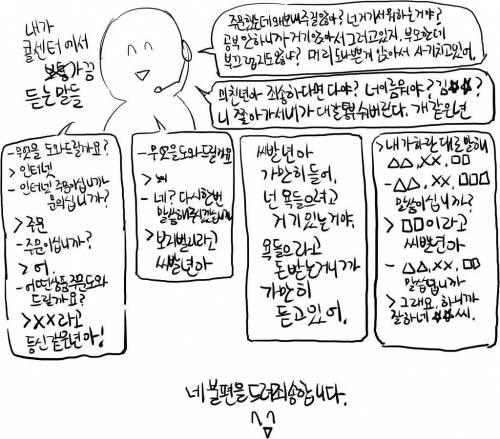 내가
콜센터에서
가끔
듣는 말들
주문했는데 왜 안보내주잖아? 넌 거기서 뭐하는거야?
공부 안하니까 거기 앉아서 그러고 있지. 부모한테
부끄럽지도 않냐? 머리도 나쁜게 앉아서 사기치고있어.
미친년아 죄송하다면 다야? 너 이름 뭐야? 김☆☆?
니 찾아가서 내가 대가리 쉬버린다. 개같은년
- 무엇을 도와드릴까요?
> 인터넷
- 인터넷 주문이십니까
문의십니까?
> 주문
- 주문이십니까?
> 어.
- 어떤상품 주문도와
드릴까요?
> XX라고
등신같은년아!
- 무엇을 도와드릴까요
- 네? 다시한번
말씀해주시겠습니까
>보지벌리라고
씨발년아
씨발년아
가만히들어.
넌 욕들으려고
거기있는거야.
욕들으라고
돈받는거니까
가만히
듣고있어.
> 내가 하란대로 말해
△△, XX, □□
- △△, XX, □□
말씀이십니까?
> □□이라고
씨발년아
- △△, XX, □□
말씀입니까
> 그래요, 하니까
잘하네 ☆☆씨.
네 불편을 드려 죄송합니다.